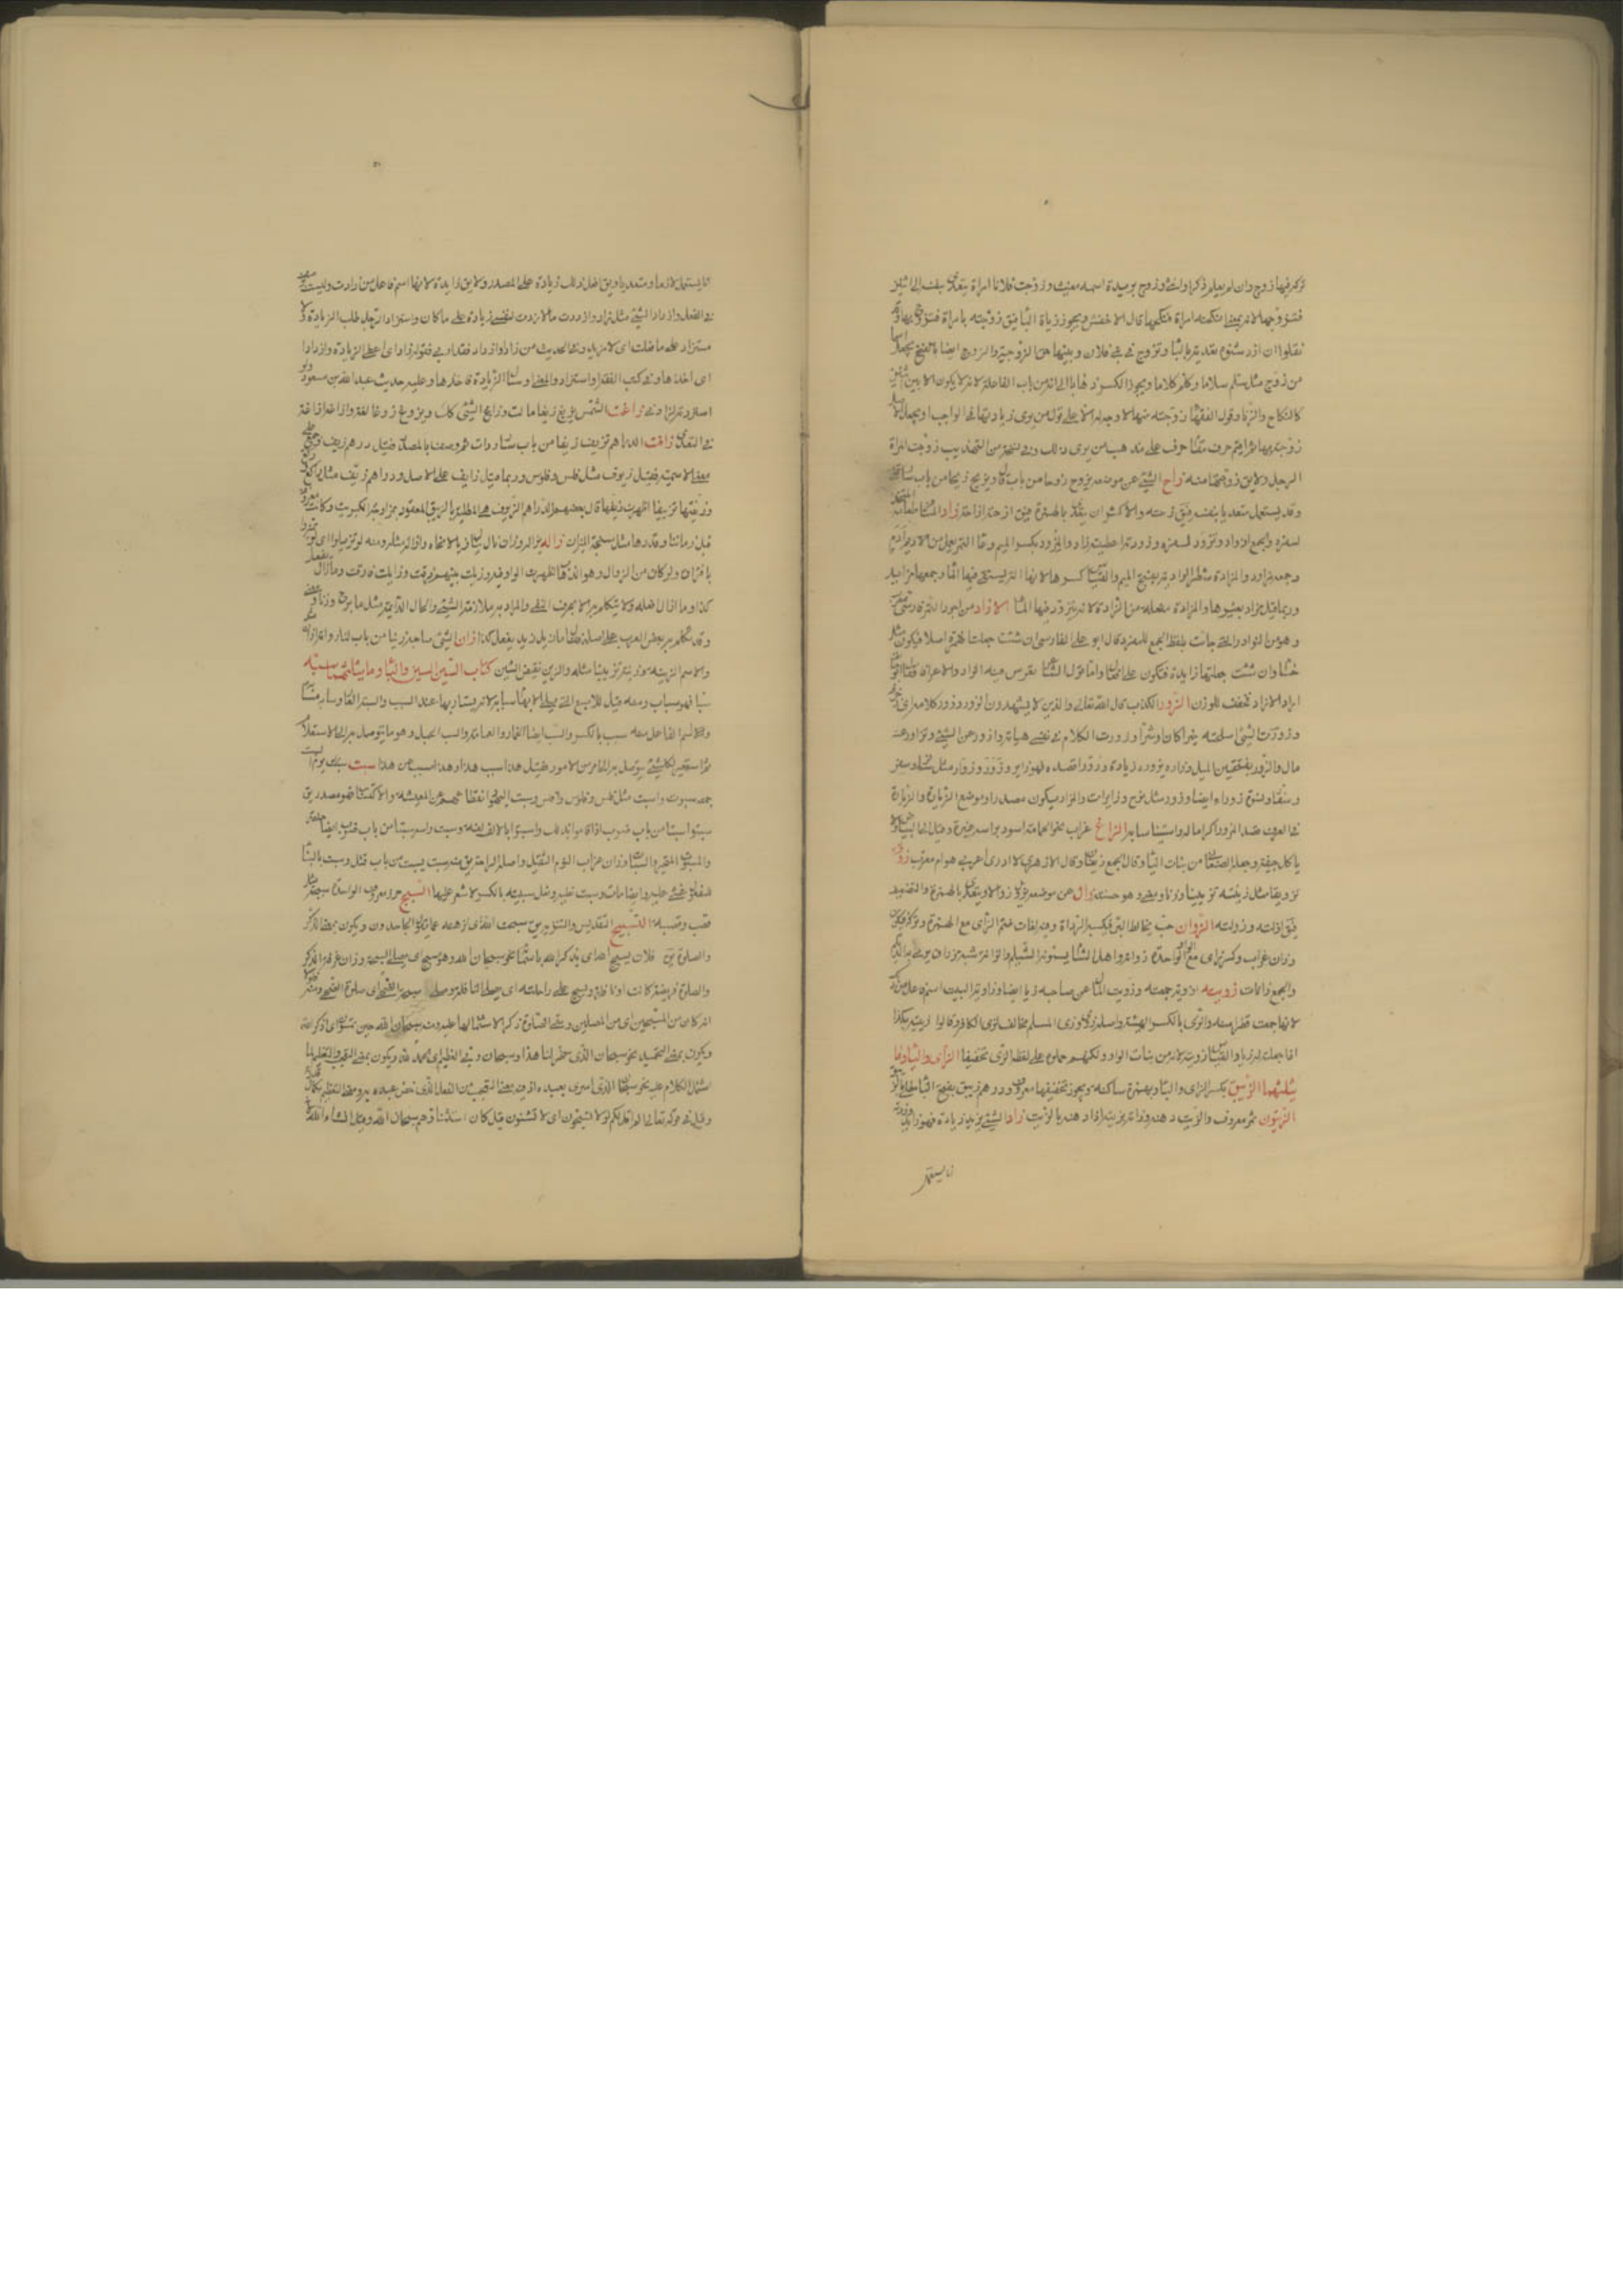 تركه فيها زوج وان لم يعلم ذكرا وانثى وزوج بريدة اسم معتث وزوجت فلانا امراة يتعدى بنفسه الى اثنين
فتزوجها لانه بمعنى انكحته امراة فنكحها قال الاخفش ويجوز زيادة الباء فيق زوجته بامراة فتزوج بها وقد
نقلوا ان ازد شنوءة تعديه بالباء وتزوج في بني فلان وبينهما حق الزوجية والزواج ايضا بالفتح يجعل اسما
من زوج مثل سلم سلاما وكلم كلاما ويجوز الكسر ذهابا الى انه من باب المفاعلة لانه لا يكون الا بين اثنين
كالنكاح والزنا وقول الفقهاء زوجته منها لا وجه له الا على قول من يرى زيادتها في الواجب او يجعل الاصل
زوجته بها ثم اقيم حرف مقام حرف على مذهب من يرى ذلك وفي نسخة من التهذيب زوجت المراة
الرجل ولا يق زوجتها منه زاح الشيء عن موضعه يزوح زوحا من باب قال ويزيح زيحا من باب سار
وقد يستعمل متعديا بنفسه فيق زحته والاكثر ان يتعدى بالهمزة فيق ازحته ازاحة زاد المسافر طعامه المتخذ
لسفره والجمع ازواد وتزود لسفره وزودته اعطيته زادا والمزود بكسر الميم وعاء التمر يعمل من الادم
وجمعه مزاود والمزادة شطر الراوية بفتح الميم والقياس كسرها لانها آلة يستقى فيها الماء وجمعها مزايد
وربما قيل مزاد بغيرها والمزادة مفعلة من الزاد لانه يتزود فيها الماء الازاذ من اجود التمر فارسي معرب
وهو من النوادر التي جاءت بلفظ الجمع للمفرد قال ابو علي الفارسي ان شئت جعلت الهمزة اصلا فيكون مثل
خاتام وان شئت جعلتها زايدة فتكون على افعال واما قول الشاعر يغرس فيه الزاذ والاعرافا فقال ابو حاتم
اراد الازاذ فخفف للوزن الزور الكذب قال الله تعالى والذين لا يشهدون الزور وزور كلامه اي زخرفه
وزورت الشيء اصلحته خيرا كان او شرا وزورت الكلام في نفسي هيأته وازور عن الشيء وتزاور عنه
مال والزور بفتحتين الميل وزاره يزوره زيارة وزورا قصده فهو زاير وزور وزوار مثل سافر وسفر
وسفار ونسوة زور ايضا وزور مثل نوح وزايرات والمزار يكون مصدرا وموضع الزيارة والزيارة
في العرف قصد المزور اكراما له واستيناسا به الزاغ غراب نحو الحمامة اسود براسه غبرة وقيل الى البياض ولا
ياكل جيفة وجعله الصغاني من بنات الياء وقال الجمع زيغان وقال الازهري لا ادري اعربي هو ام معرب زوقته
تزويقا مثل زينته تزيينا وزنا ومعنى وهو حسنته زال عن موضعه يزول زوالا ويتعدى بالهمزة والتضعيف
فيق ازلته وزولته الزوان حب يخالط البر فيكسبه الرداءة وفيه لغات ضم الزاي مع الهمزة وتركه فيكون
وزان غراب وكسر الزاي مع الواو الواحدة زوانة واهل الشام يسمونه الشيلم
والجمع زانات زويته ازويه جمعته وزويت المال عن صاحبه زيا ايضا وزاوية البيت اسم فاعل من ذلك
لانها جمعت قطرا منه والزي بالكسر الهيئة واصله زوي وزي المسلم مخالف لزي الكافر وقالوا زييته بكذا
اذا جعلته له زيا والقياس زويته لانه من بنات الواو ولكنهم حملوه على لفظ الزي تخفيفا الزاي والياء وما
يثلثهما الزئبق بكسر الزاي والباء وبهمزة ساكنة ويجوز تخفيفها معروف ودرهم مزيبق بفتح الباء مطلي بالزيبق
الزيتون ثمر معروف والزيت دهنه وزاته يزيته اذا دهنه بالزيت زاد الشيء يزيد زيادة فهو زايد وزدته
انا يستعمل
انا يستعمل لازما ومتعديا ويق افعل ذلك زيادة على المصدر ولا يق زايدة لانها اسم فاعل من زادت وليست بوصف
في الفعل وازداد الشيء مثل زاد وازددت مالا زدته لنفسي زيادة على ما كان واستزاد الرجل طلب الزيادة ولا
مستزاد على ما فعلت اي لا مزيد وفي الحديث من زاد او ازداد فقد اربى فقوله زاد اي اعطى الزيادة وازداد
اي اخذها وفي كتب الفقه او استزاد والمعنى او سأل الزيادة فاخذها وعليه حديث عبد الله بن مسعود ولو
استزدته لزادني زاغت الشمس تزيغ زيغا مالت وزاغ الشيء كذلك ويزوغ زوغا لغة وازاغه ازاغة
في التعدي زافت الدراهم تزيف زيفا من باب سار ردأت ثم وصف بالمصدر فقيل درهم زيف وجمع على
معنى الاسمية فقيل زيوف مثل فلس وفلوس وربما قيل زايف على الاصل ودراهم زيف مثل راكع وركع
وزيفتها تزييفا اظهرت زيفها قال بعضهم الدراهم الزيوف هي المطلية بالزيبق المعقود بمزاوجة الكبريت وكانت معروفة
قبل زماننا وقدرها مثل سنجة الميزان زاله يزاله وزان نال ينال زيالا نحاه وازاله مثله ومنه لو تزيلوا اي لو تميزوا
بافتراق ولو كان من الزوال وهو الذهاب لظهرت الواو فيه وزيلت بينهم فرقت وزايلته فارقته وما زال يفعل
كذا وما ازال افعله ولا يتكلم به الا بحرف النفي والمراد به ملازمة الشيء والحال الدايمة مثل ما برح وزنا ومعنى
وقد تكلم به بعض العرب على اصله فقال ما زيل زيد يفعل كذا زان الشيء صاحبه زينا من باب سار وازانه مثله
والاسم الزينة وزينه تزيينا مثله والزين نقيض الشين كتاب السين السين والباء وما يثلثهما سبه
سبا فهو سباب ومنه قيل للاصبع التي تلي الابهام سبابة لانه يشار بها عند السب والسبة العار وسابه مسابة
واسم الفاعل منه سب بالكسر والسب ايضا الخمار والعمامة والسبب الحبل وهو ما يتوصل به الى الاستعلاء
ثم استعير لكل شيء يتوصل به الى امر من الامور فقيل هذا سبب هذا وهذا مسبب عن هذا سبت يوم السبت
جمعه سبوت واسبت مثل فلس وفلوس وافلس وسبت اليهود انقطاعهم عن المعيشة والاكتساب وهو مصدر يق
سبتوا سبتا من باب ضرب اذا قاموا بذلك واسبتوا بالالف لغة وسبت راسه سبتا من باب قتل ايضا حلقه
والمسبوت المتحير والسبات وزان غراب النوم الثقيل واصله الراحة يق منه سبت يسبت من باب قتل وسبت بالبناء
للمفعول غشي عليه وايضا مات وسبت نعل سبتية بالكسر لا شعر عليها السبج خرز معروف الواحدة سبجة مثل
قصب وقصبة التسبيح التقديس والتنزيه يق سبحت الله اي نزهته عما يقول الجاحدون ويكون بمعنى الذكر
والصلوة يق فلان يسبح الله اي يذكر الله باسمائه نحو سبحان الله وهو يسبح اي يصلي السبحة وزان غرفة الذكر
والصلوة فريضة كانت او نافلة ويسبح على راحلته اي يصلي النافلة وصلى سبحة الضحى اي صلوة الضحى ومنه فلولا
انه كان من المسبحين اي من المصلين وسميت الصلوة ذكرا لاشتمالها عليه ومنه سبحان الله حين تمسون اي اذكروا الله
ويكون بمعنى التحميد نحو سبحان الذي سخر لنا هذا وسبحان ربي العظيم اي الحمد لله ويكون بمعنى التعجب والتعظيم لما
اشتمل الكلام عليه نحو سبحان الذي اسرى بعبده اذ فيه معنى التعجب من الفعل الذي خص عبده به ومعنى التعظيم بكمال قدرته
وقيل في قوله تعالى الم اقل لكم لولا تسبحون اي لا تستثنون قيل كان استثناؤهم سبحان الله وقيل ان شاء الله